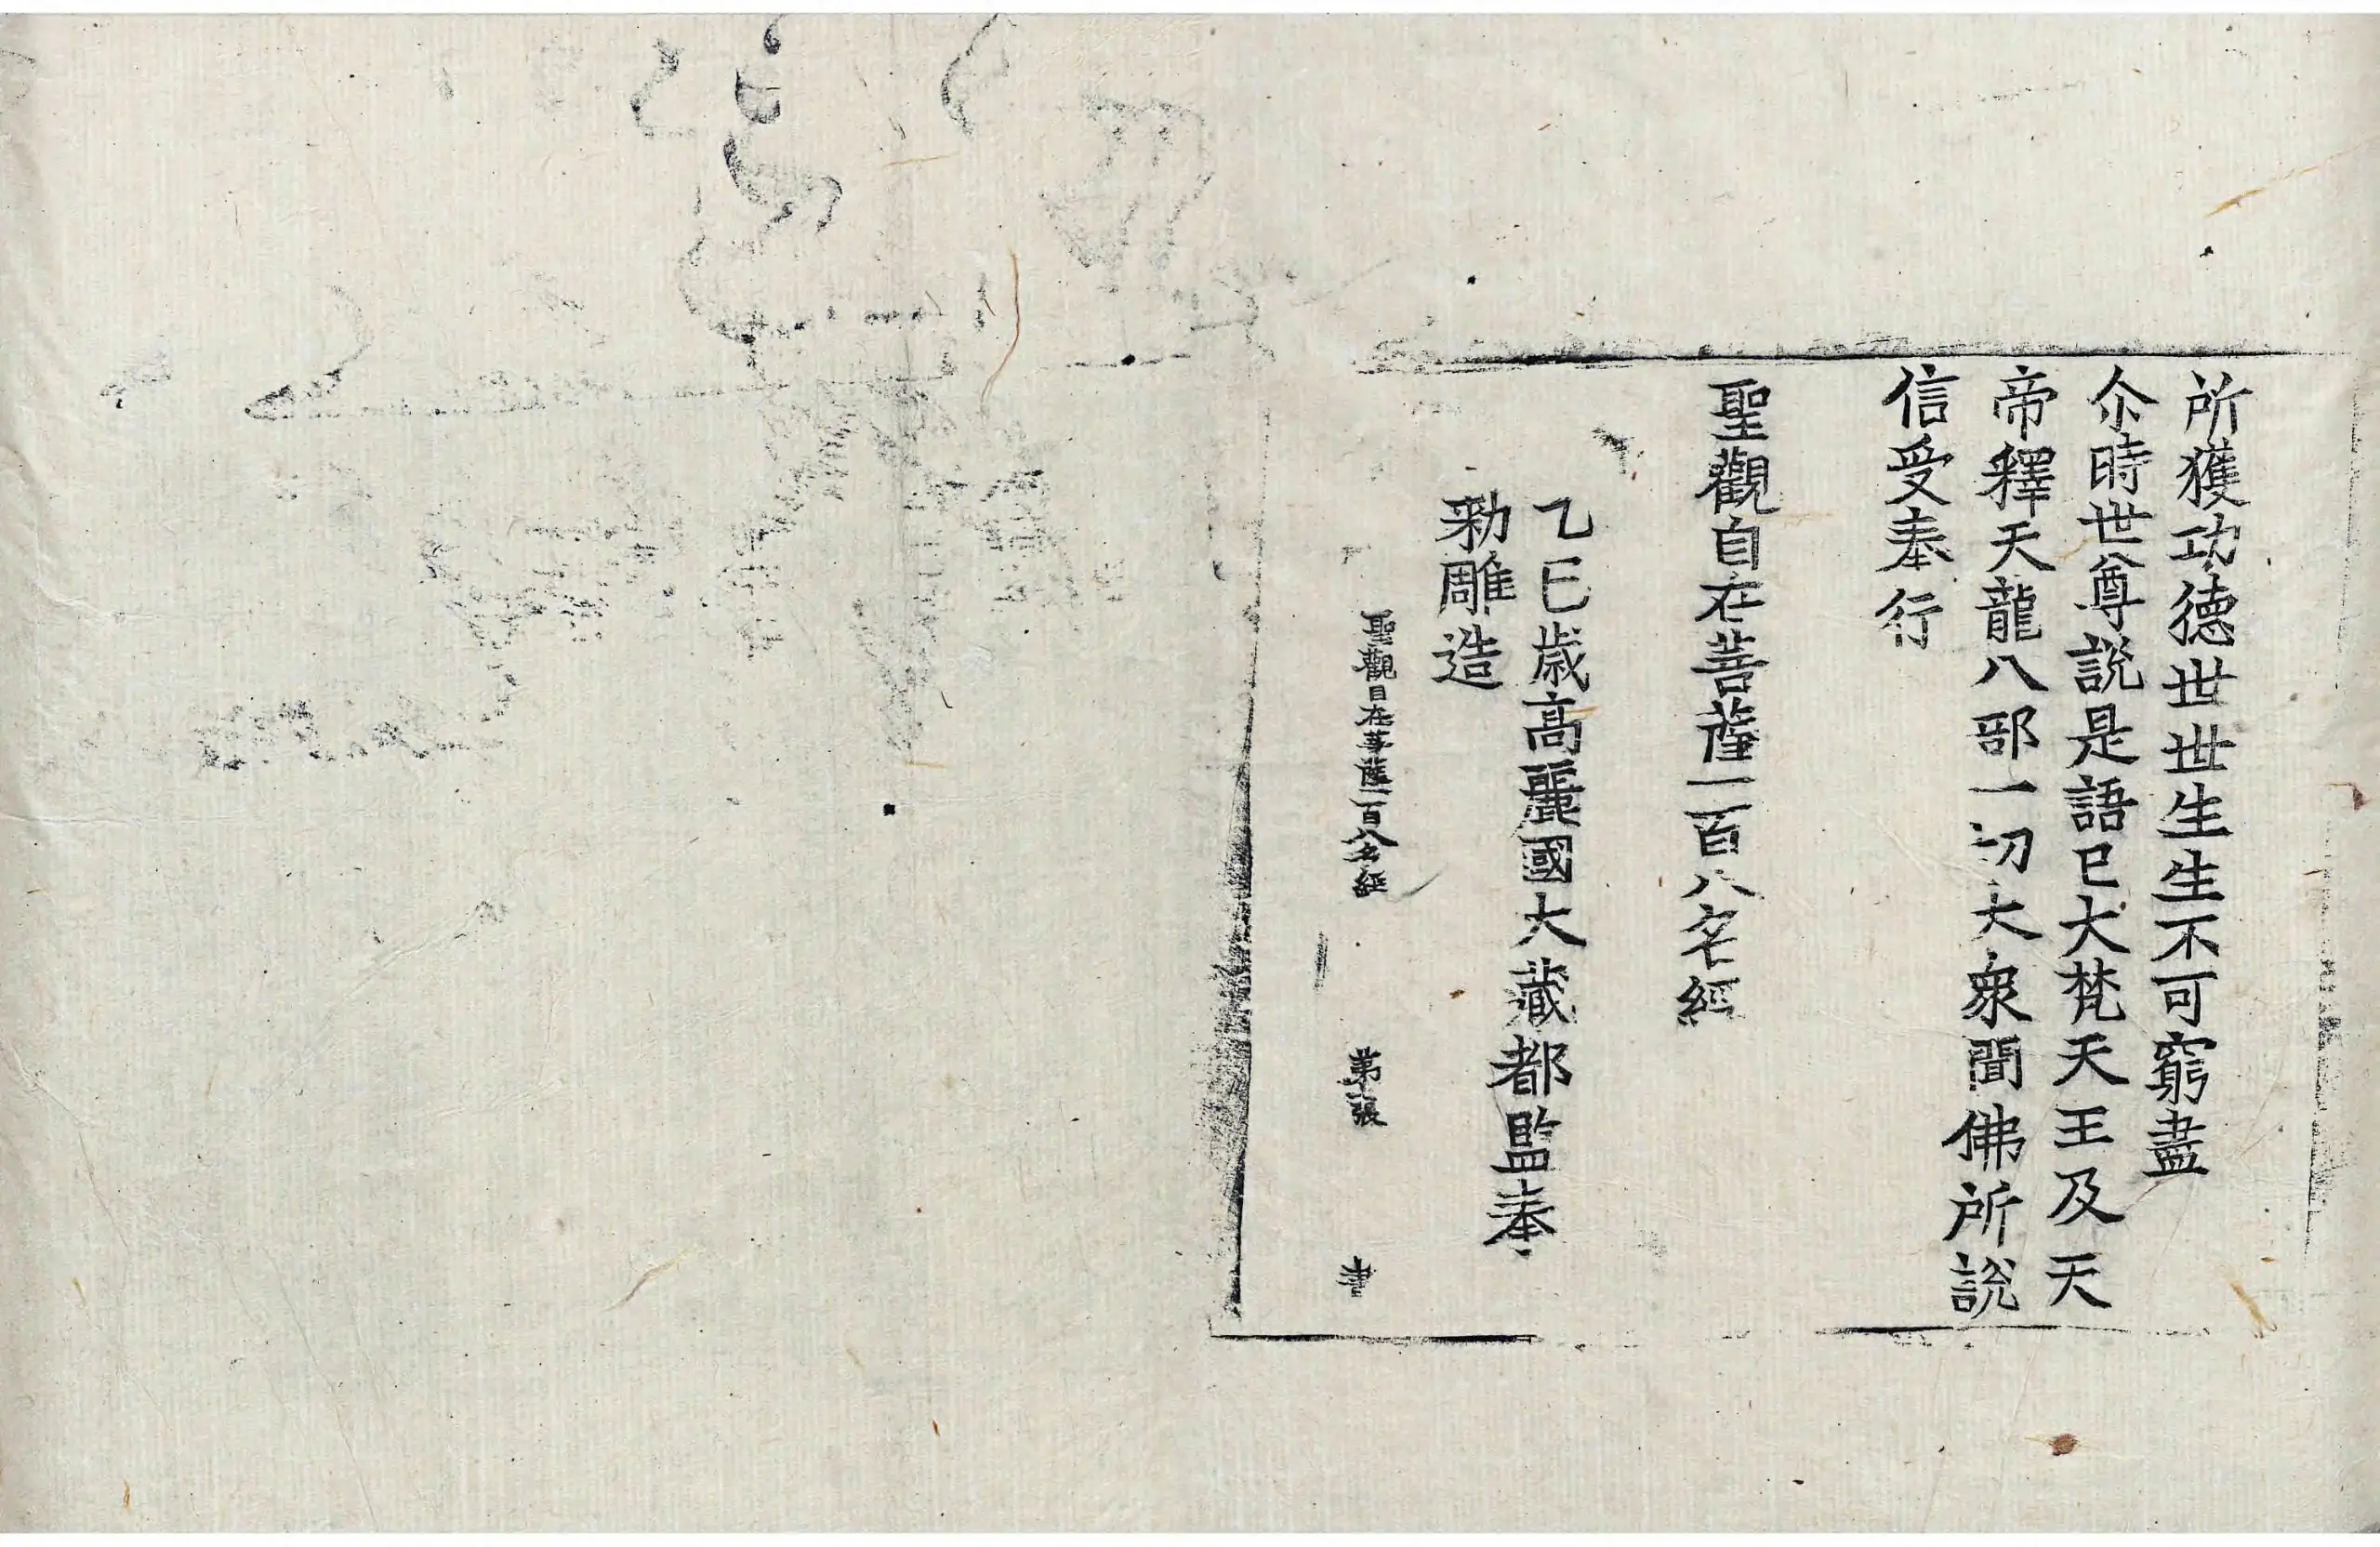 所獲功德世世生生不可窮盡
尒時世尊說是語已大梵天王及天
帝釋天龍八部一切大衆聞佛所說
信受奉行
聖觀自在菩薩一百八名經
乙巳歲高麗國大藏都監奉
勑雕造
聖觀自在菩薩一百八名經 第 張